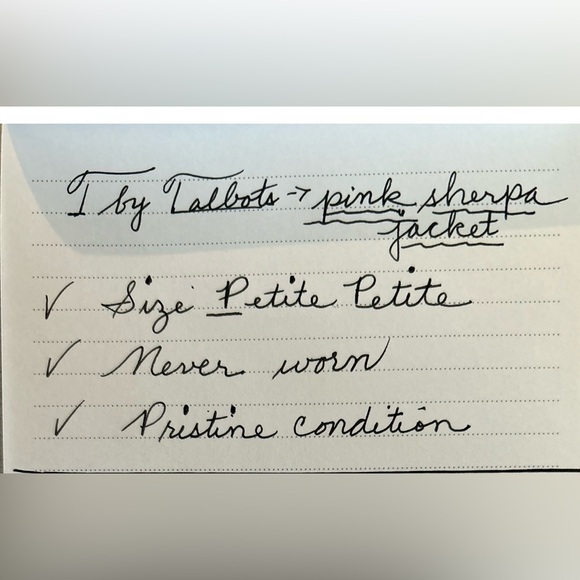 T by Talbots → pink sherpa
jacket
✓ Size Petite Petite
✓ Never worn
✓ Pristine condition